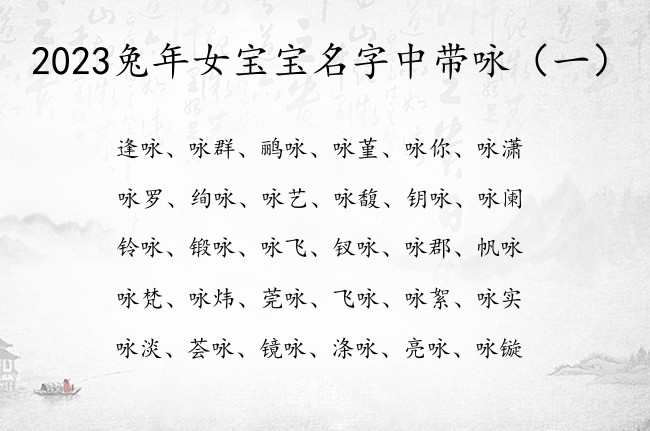 2023兔年女宝宝名字中带咏（一）
逢咏、咏群、鹂咏、咏堇、咏你、咏潇
咏罗、绚咏、咏艺、咏馥、钥咏、咏阑
铃咏、锻咏、咏飞、钗咏、咏郡、帆咏
咏梵、咏炜、莞咏、飞咏、咏絮、咏实
咏淡、荟咏、镜咏、涤咏、亮咏、咏镟